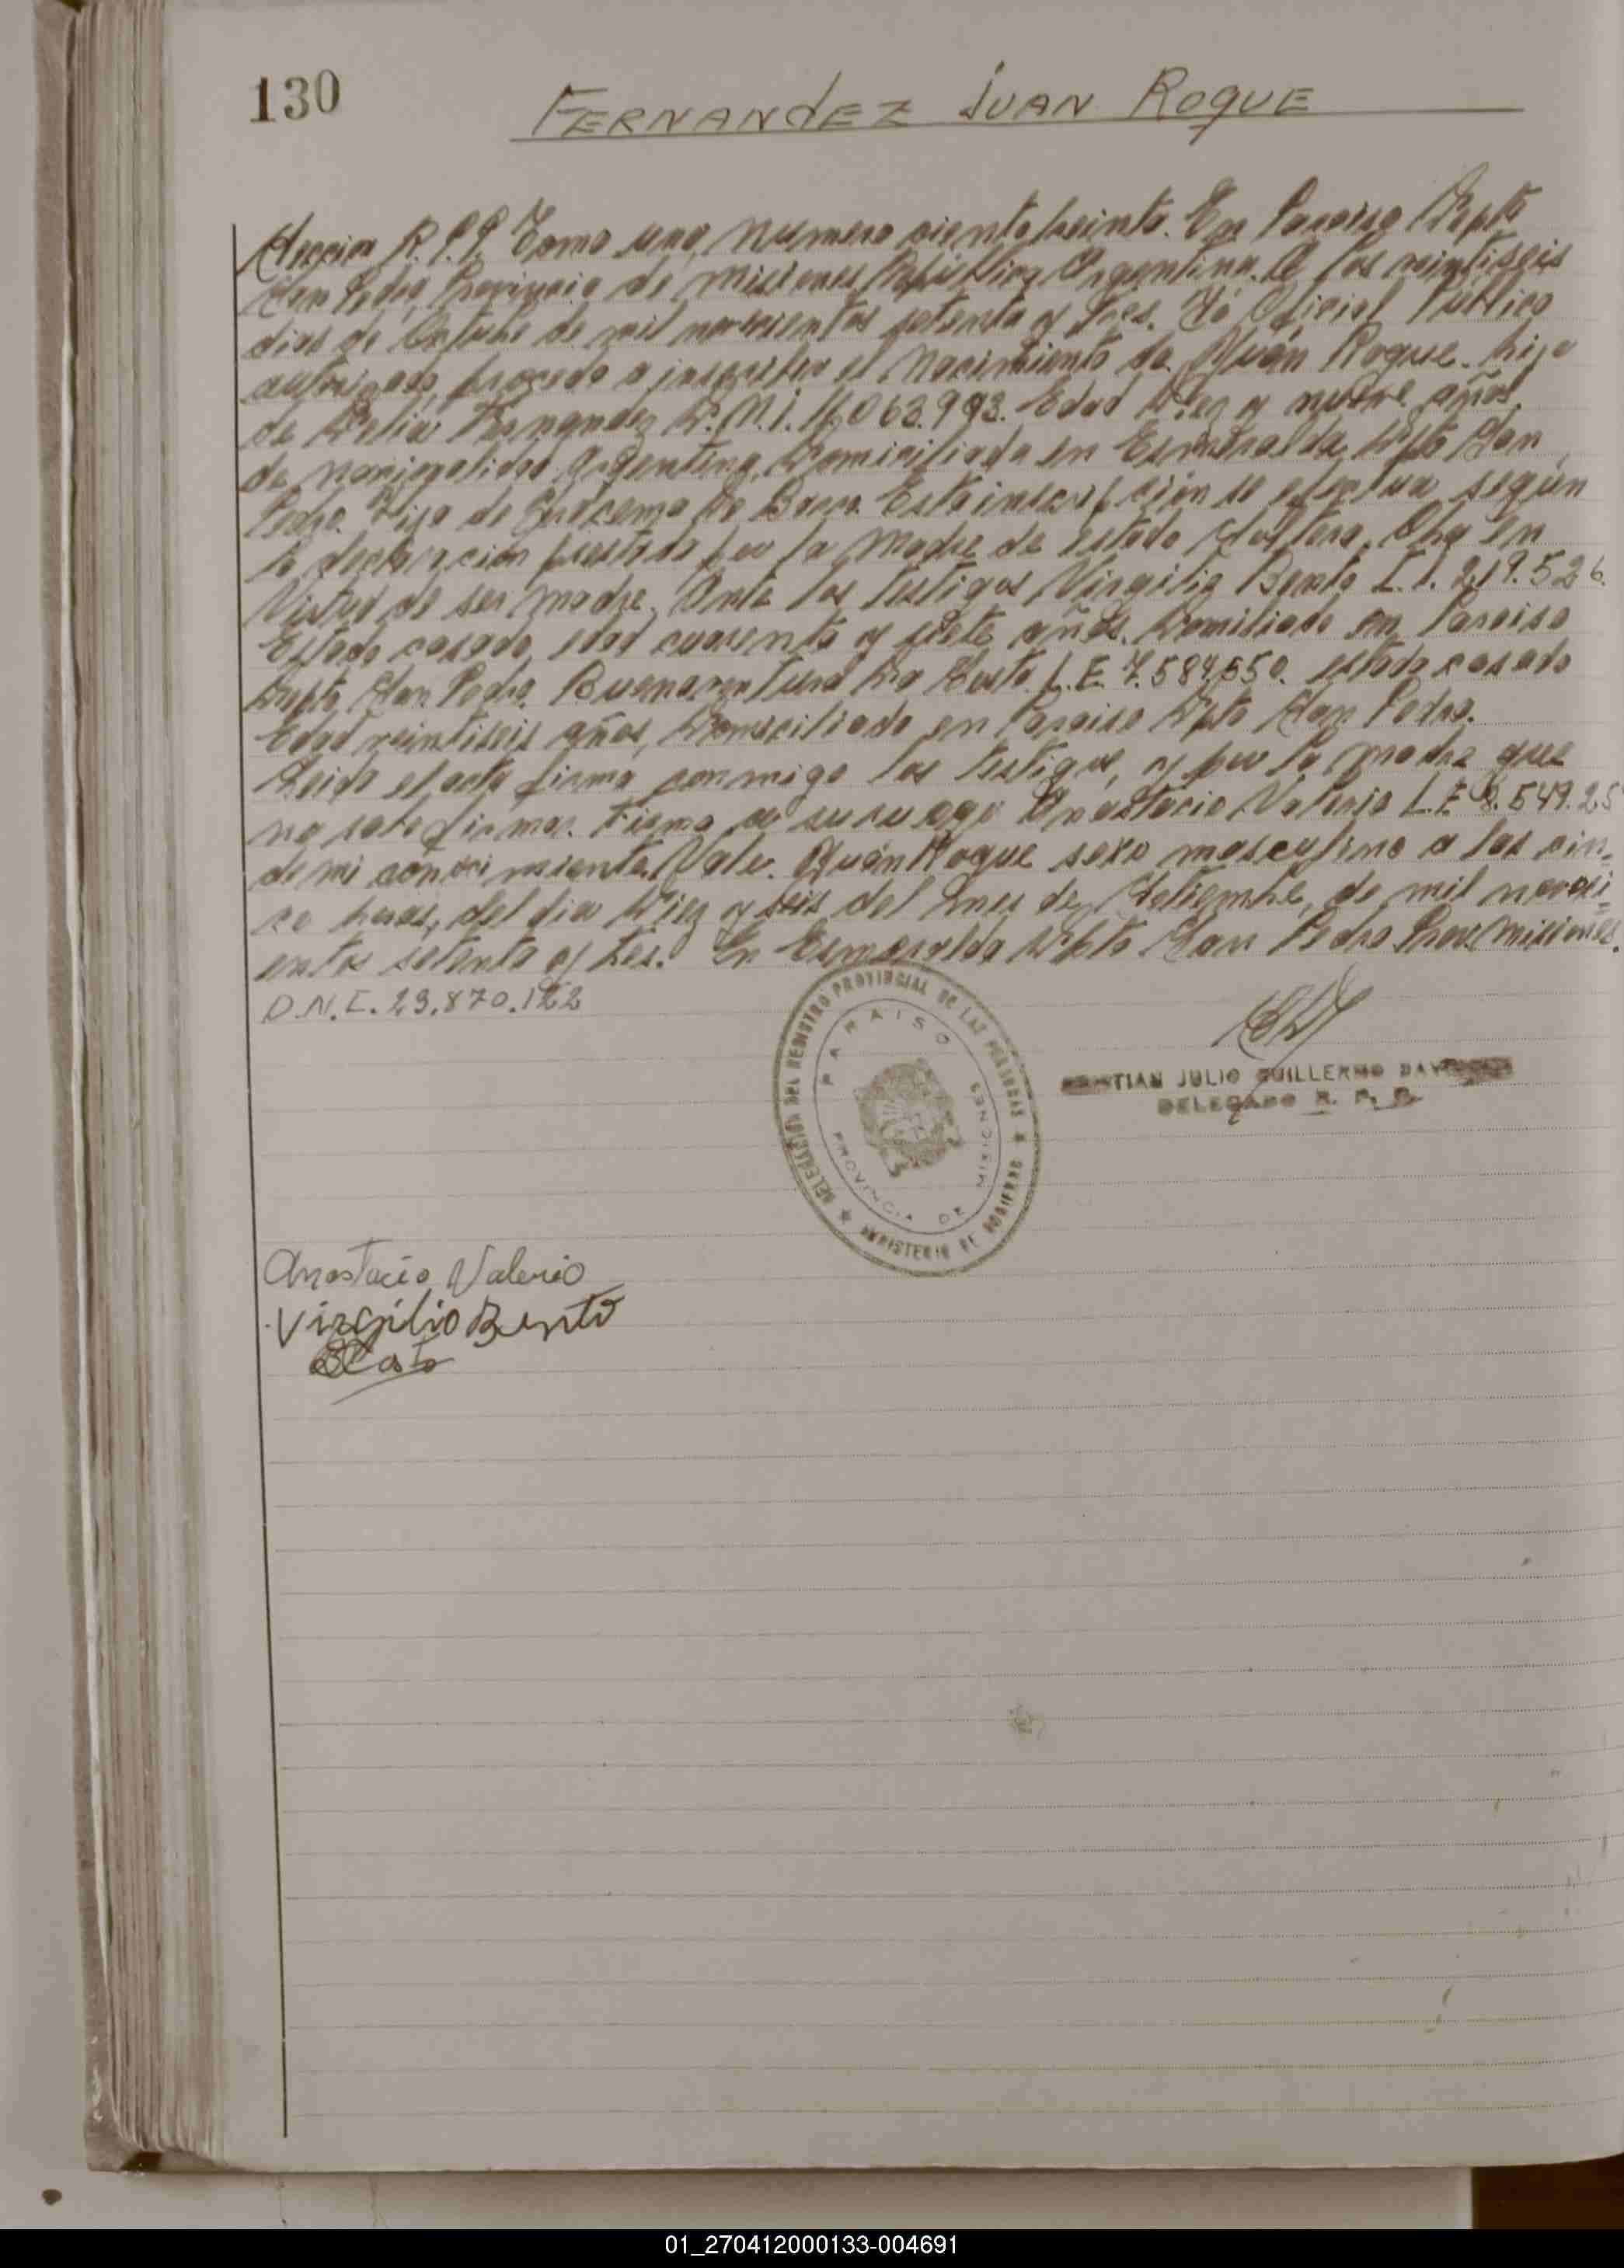 130
FERNANDEZ JUAN ROQUE
R.P.P. Tomo uno, Numero ciento treinta. En Paraiso Depto
San Pedro, Provincia de Misiones, República Argentina. A los veintiseis
dias de Octubre de mil novecientos setenta y tres. Yo Oficial Público
autorizado, procedo a inscribir el Nacimiento de Juan Roque. hijo
de Delia Fernandez D.N.I. 11.063.993. Edad Diez y nueve años,
de nacionalidad Argentina, Domiciliada en Esmeralda Dpto San
Pedro. Hija de De Bara. Esta inscripción se efectua según
la declaración prestada por la Madre de estado Soltera. Obra en
Virtud de ser Madre. Ante los Testigos Virgilio Bento 219.526.
Estado casado, edad cuarenta y siete años. Domiliado en Paraiso
Depto San Pedro. Buenaventura Da Costa L.E. 7.584.550. estado casado
Edad veintiseis años, Domiciliado en Paraiso Dpto San Pedro.
Leido el acta firma conmigo los testigos, y por la madre que
no sabe firmar. Firma a su ruego Anastacio Valerio L.E 8.549.25
de mi conocimiento. Vale. Juan Roque sexo masculino a las cin-
co horas, del dia Diez y seis del mes de Setiembre, de mil noveci-
entos setenta y tres. En Esmeralda Dpto San Pedro Prov. Misiones.
D.N.I. 23.870.122
DELEGACION DEL REGISTRO PROVINCIAL DE LAS PERSONAS
PARAISO
PROVINCIA DE MISIONES
MINISTERIO DE GOBIERNO
CRISTIAN JULIO GUILLERMO
DELEGADO R. P. P.
Anastacio Valerio
Virgilio Bento
01_270412000133-004691